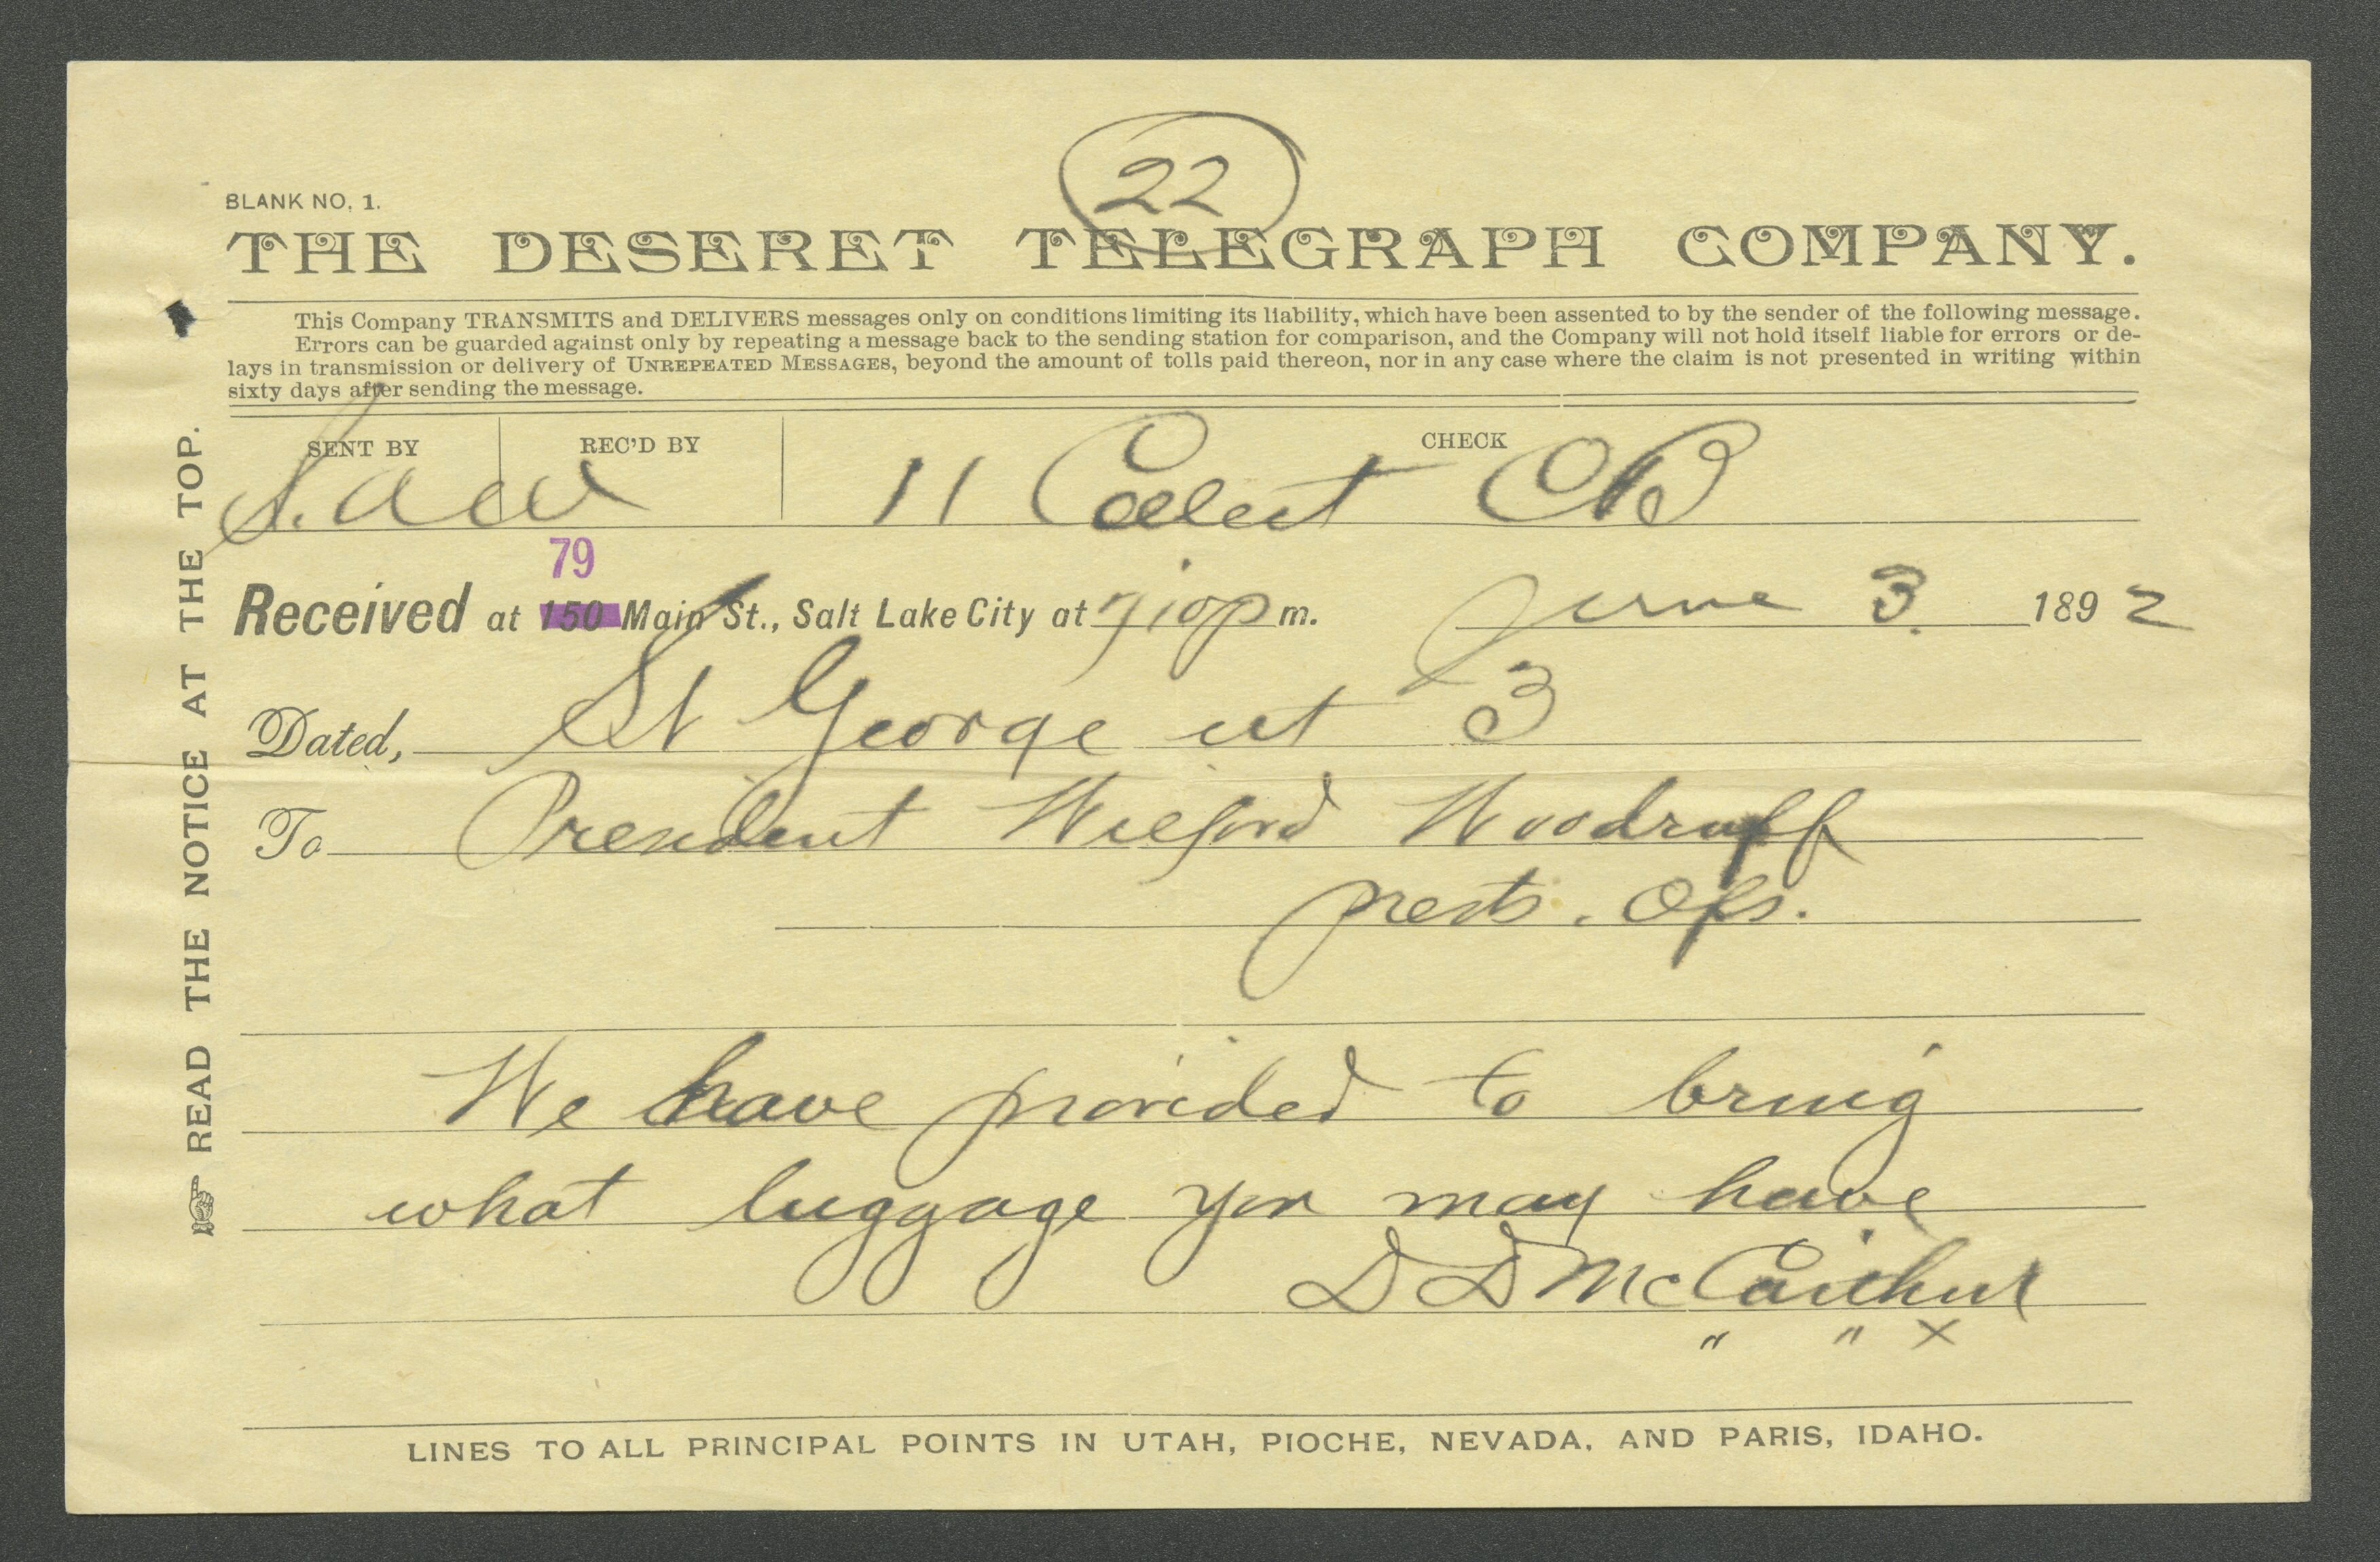 22
BLANK NO. 1.
THE DESERET TELEGRAPH COMPANY.
This Company TRANSMITS and DELIVERS messages only on conditions limiting its liability, which have been assented to by the sender of the following message.
Errors can be guarded against only by repeating a message back to the sending station for comparison, and the Company will not hold itself liable for errors or de-
lays in transmission or delivery of UNREPEATED MESSAGES, beyond the amount of tolls paid thereon, nor in any case where the claim is not presented in writing within
sixty days after sending the message.
SENT BY REC'D BY CHECK
11 Collect
79
Received at 150 Main St., Salt Lake City at 710p m. June 3. 1892
Dated, St George ut 3
To President Wilford Woodruff
prests. Ofs.
We have provided to bring
what luggage you may have
D D McCarthur
" " X
LINES TO ALL PRINCIPAL POINTS IN UTAH, PIOCHE, NEVADA, AND PARIS, IDAHO.
READ THE NOTICE AT THE TOP.